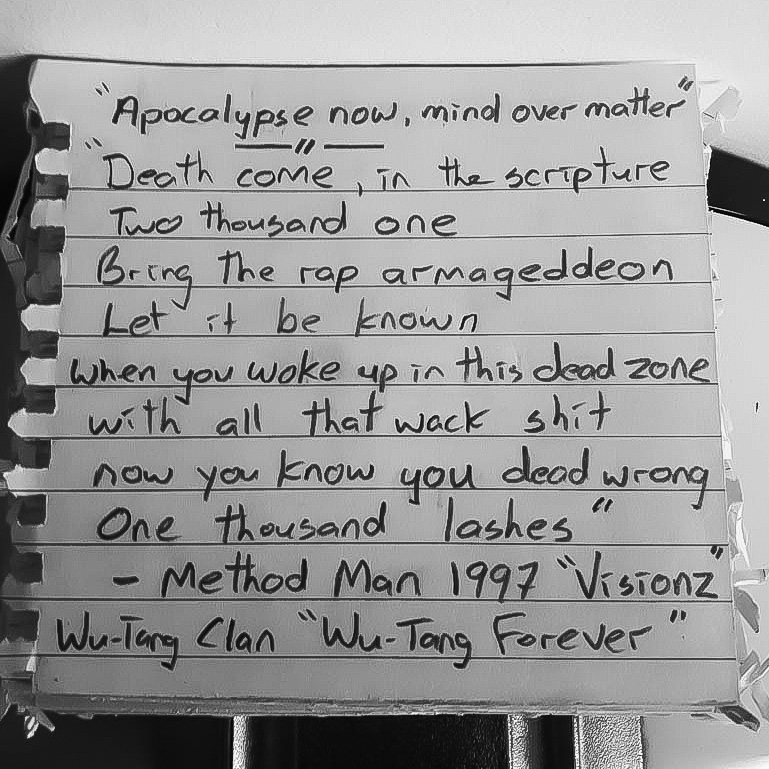 "Apocalypse now, mind over matter"
"Death come", in the scripture
Two thousand one
Bring the rap armageddeon
Let it be known
when you woke up in this dead zone
with all that wack shit
now you know you dead wrong
One thousand lashes"
- Method Man 1997 "Visionz"
Wu-Tang Clan "Wu-Tang Forever"